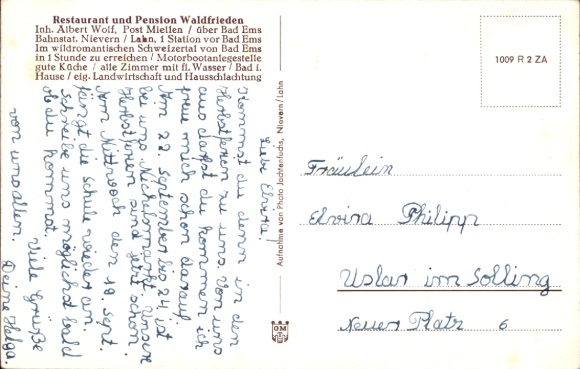 Restaurant und Pension Waldfrieden
Inh. Albert Wolf, Post Miellen / über Bad Ems
Bahnstat. Nievern / Lahn, 1 Station vor Bad Ems
Im wildromantischen Schweizertal von Bad Ems
in 1 Stunde zu erreichen / Motorbootanlegestelle
gute Küche / alle Zimmer mit fl. Wasser / Bad i.
Hause / eig. Landwirtschaft und Hausschlachtung
Liebe Elvira!
Kommst du denn in den
Herbstferien zu uns. Von uns
aus darfst du kommen ich
freu mich schon darauf.
Am 22. September bis 24. ist
bei uns Nickelsmarkt. Unsere
Herbstferien sind jetzt schon.
Am Mittwoch den 19. Sept.
fängt die Schule wieder an.
Schreibe uns möglichst bald
ob du kommst.
Viele Grüße
von uns allen. Deine Helga.
Aufnahme von Photo Juchtenfuchs, Nievern/Lahn
GM
1009 R 2 ZA
Fräulein
Elvira Philipp
Uslar im Solling
Neuer Platz 6